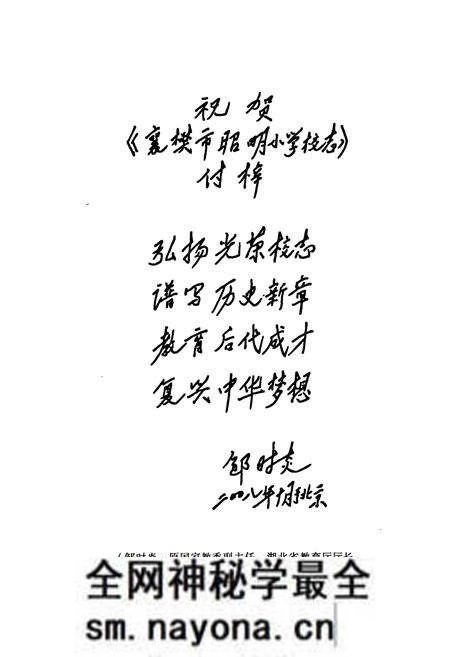 祝贺
《襄樊市昭明小学校志》
付梓
弘扬光荣校志
谱写历史新章
教育后代成才
复兴中华梦想
邹时炎
二〇〇八年十月于北京
全网神秘学最全
sm.nayona.cn